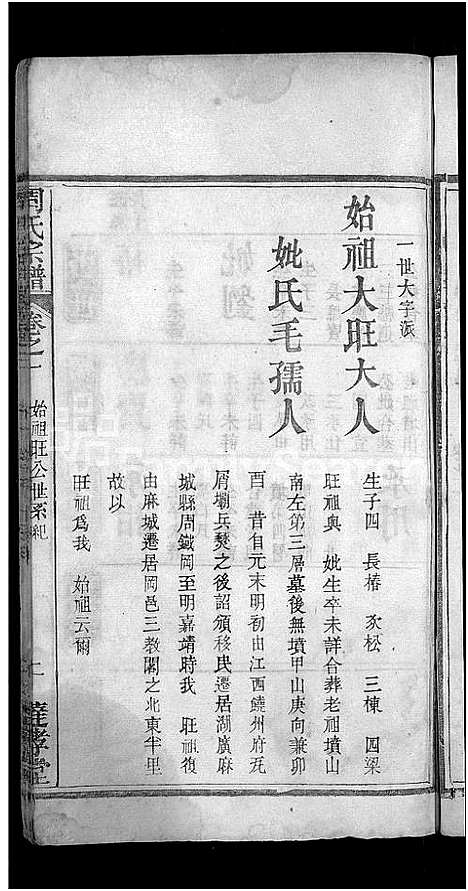 一世大字派
始祖大旺大人
妣氏毛孺人
生子四 長椿 次松 三棟 四梁
旺祖與 妣生卒未詳合葬老祖墳山
南左第三層墓後無墳甲山庚向兼卯
酉 昔自元末明初由江西饒州府瓦
屑壩兵燹之後詔頒移民遷居湖廣麻
城縣周鐵岡至明嘉靖時我 旺祖復
由麻城遷居岡邑三教閣之北東半里
故以
旺祖爲我 始祖云爾
周氏宗譜
卷之一
始祖旺公世系紀
達孝堂